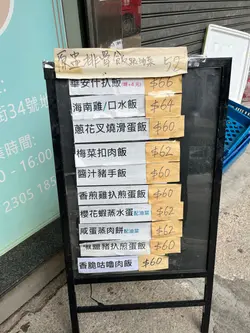 街34號地
時間：
- 16:00
2305 185
排骨飯 57
華安什扒飯 $66
海南雞/口水飯 $64
蔥花叉燒滑蛋飯 $60
梅菜扣肉飯 $62
醬汁豬手飯 $60
香煎雞扒煎蛋飯 $60
櫻花蝦蒸水蛋配油菜 $62
咸蛋蒸肉餅配油菜 $62
豬扒煎蛋飯 $60
香脆咕嚕肉飯 $60